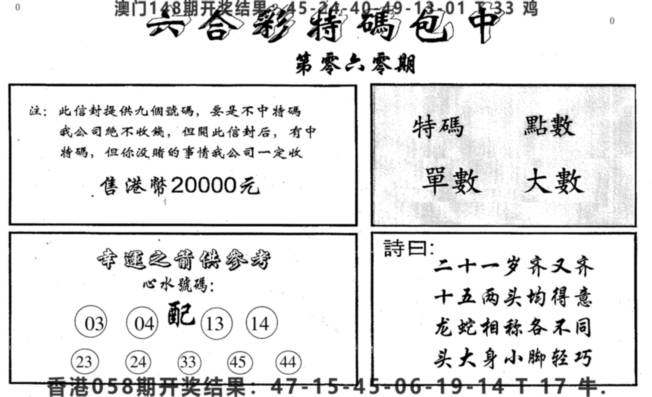 澳门148期开奖结果:45-24-40-49-13-01 T 33 鸡
六合彩特碼包中
第零六零期
注：此信封提供九個號碼，要是不中特碼
我公司絶不收錢，但開此信封后，有中
特碼，但你没賭的事情我公司一定收
售港幣20000元
特碼 點數
單數 大數
幸運之箭供參考
心水號碼:
03 04 配 13 14
23 24 33 45 44
詩曰:
二十一岁齐又齐
十五两头均得意
龙蛇相称各不同
头大身小脚轻巧
香港058期开奖结果：47-15-45-06-19-14 T 17 牛.